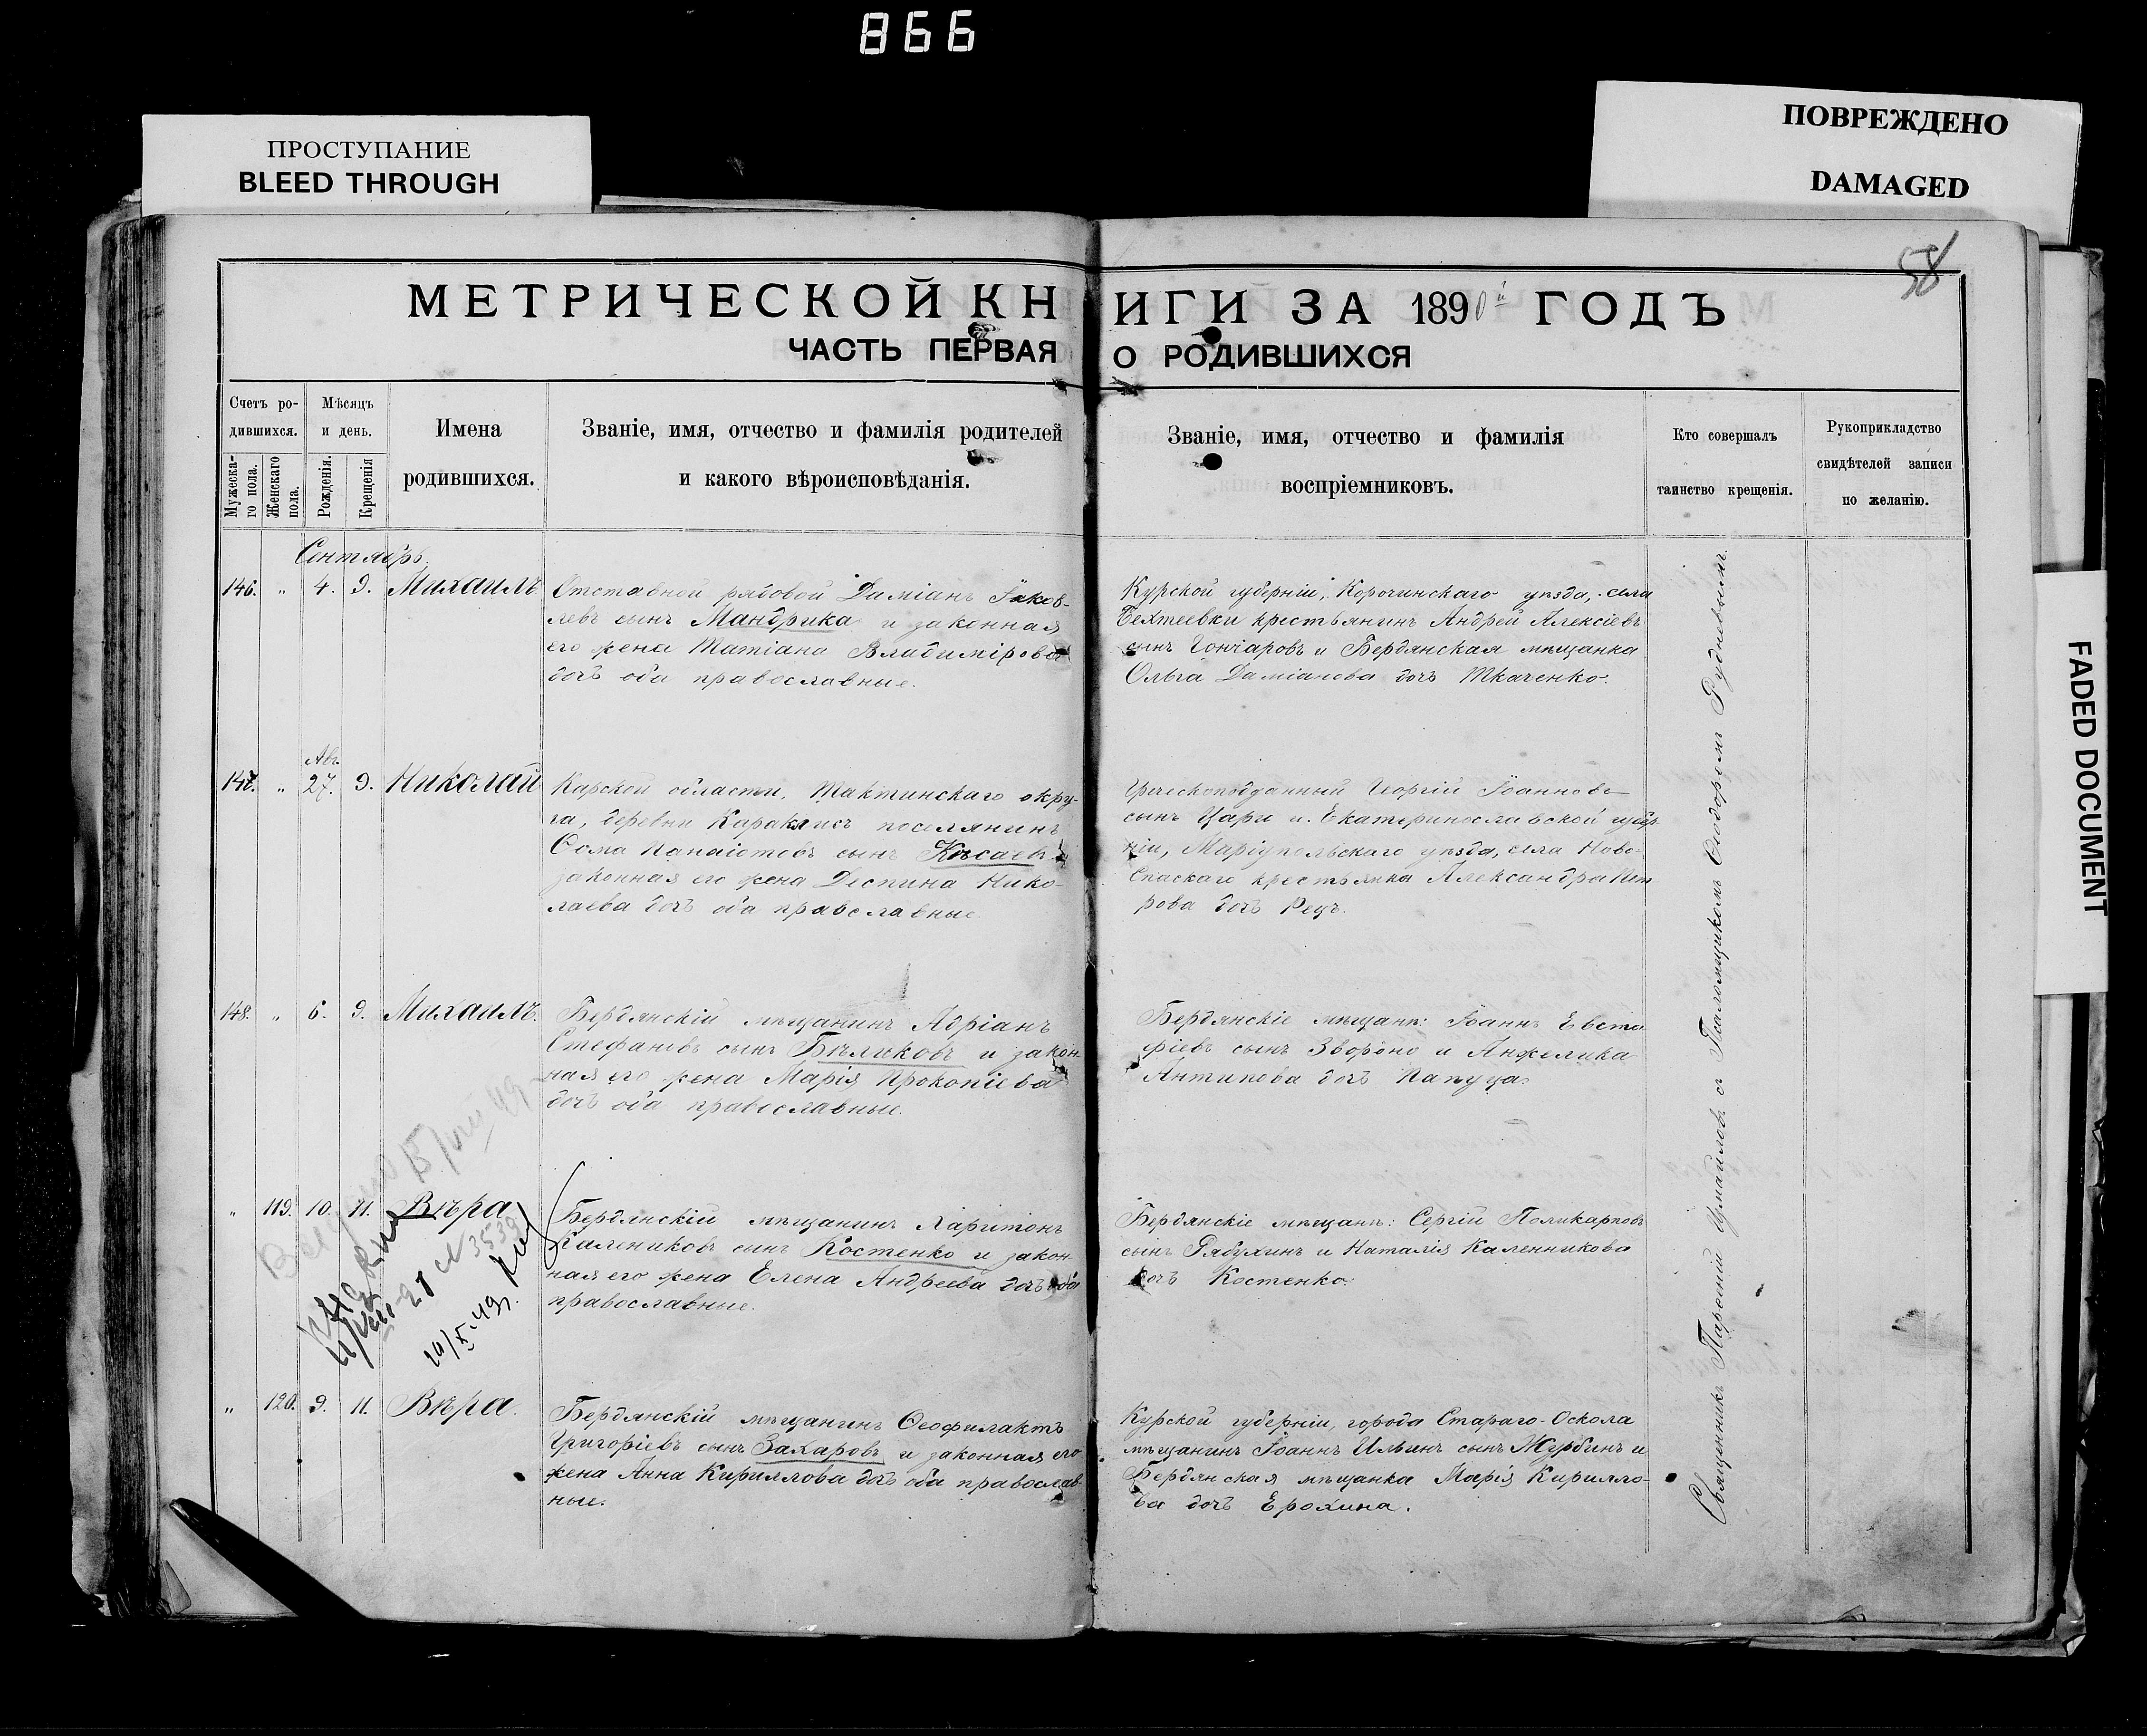 866
ПРОСТУПАНИЕ
BLEED THROUGH
ПОВРЕЖДЕНО
DAMAGED
FADED DOCUMENT
58
МЕТРИЧЕСКОЙ КНИГИ ЗА 1890й ГОДЪ
ЧАСТЬ ПЕРВАЯ О РОДИВШИХСЯ
Счетъ ро-
дившихся.
Мужеска-
го пола.
Женскаго
пола.
Мѣсяцъ
и день.
Рожденія.
Крещенія
Имена
родившихся.
Званіе, имя, отчество и фамилія родителей
и какого вѣроисповѣданія.
Званіе, имя, отчество и фамилія
воспріемниковъ.
Кто совершалъ
таинство крещенія.
Рукоприкладство
свидѣтелей записи
по желанію.
Сентябрь.
146. " 4. 9. Михаилъ
Отставной рядовой Даміанъ Іаков-
левъ сынъ Мандрика и законная
его жена Татіана Владимірова
дочь оба православные.
Курской губерніи, Корочинскаго уѣзда, села
Бехтеевки крестьянинъ Андрей Алексіевъ
сынъ Гончаровъ и Бердянская мѣщанка
Ольга Даміанова дочь Ткаченко.
Авг.
147. " 27. 9. Николай
Карской области, Тахтинскаго окру-
га, деревни Караклисъ поселянинъ
Ѳома Панаіотовъ сынъ
законная его жена Деспина Нико-
лаева дочь оба православные
Греческоподданный Георгій Іоанновъ
сынъ Цари и Екатеринославской губер
ніи, Маріупольскаго уѣзда, села Ново
Спаскаго крестьянка Александра Пет
рова дочь Рецъ.
148. " 6. 9. Михаилъ.
Бердянскій мѣщанинъ Адріанъ
Стефановъ сынъ Бѣликовъ и закон
ная его жена Марія Прокопіева
дочь оба православные.
Бердянскіе мѣщане: Іоаннъ Евста
фіевъ сынъ Звороно и Анжелика
Антипова дочь Папуца.
" 119. 10. 11. Вѣра
Бердянскій мѣщанинъ Харитонъ
Калениковъ сынъ Костенко и закон
ная его жена Елена Андреева дочь оба
православные.
Бердянскіе мѣщане: Сергій Поликарповъ
сынъ Рябухинъ и Наталія Каленникова
дочь Костенко.
" 120. 9. 11. Вѣра.
Бердянскій мѣщанинъ Ѳеофилактъ
Григоріевъ сынъ Захаровъ и законная его
жена Анна Кириллова дочь оба православ
ные.
Курской губерніи, города Стараго-Оскола
мѣщанинъ Іоаннъ Ильинъ сынъ Журбинъ и
Бердянская мѣщанка Марія Кирилло-
ва дочь Ерохина.
Священникъ съ Псаломщикомъ Ѳеодоромъ Рудневымъ